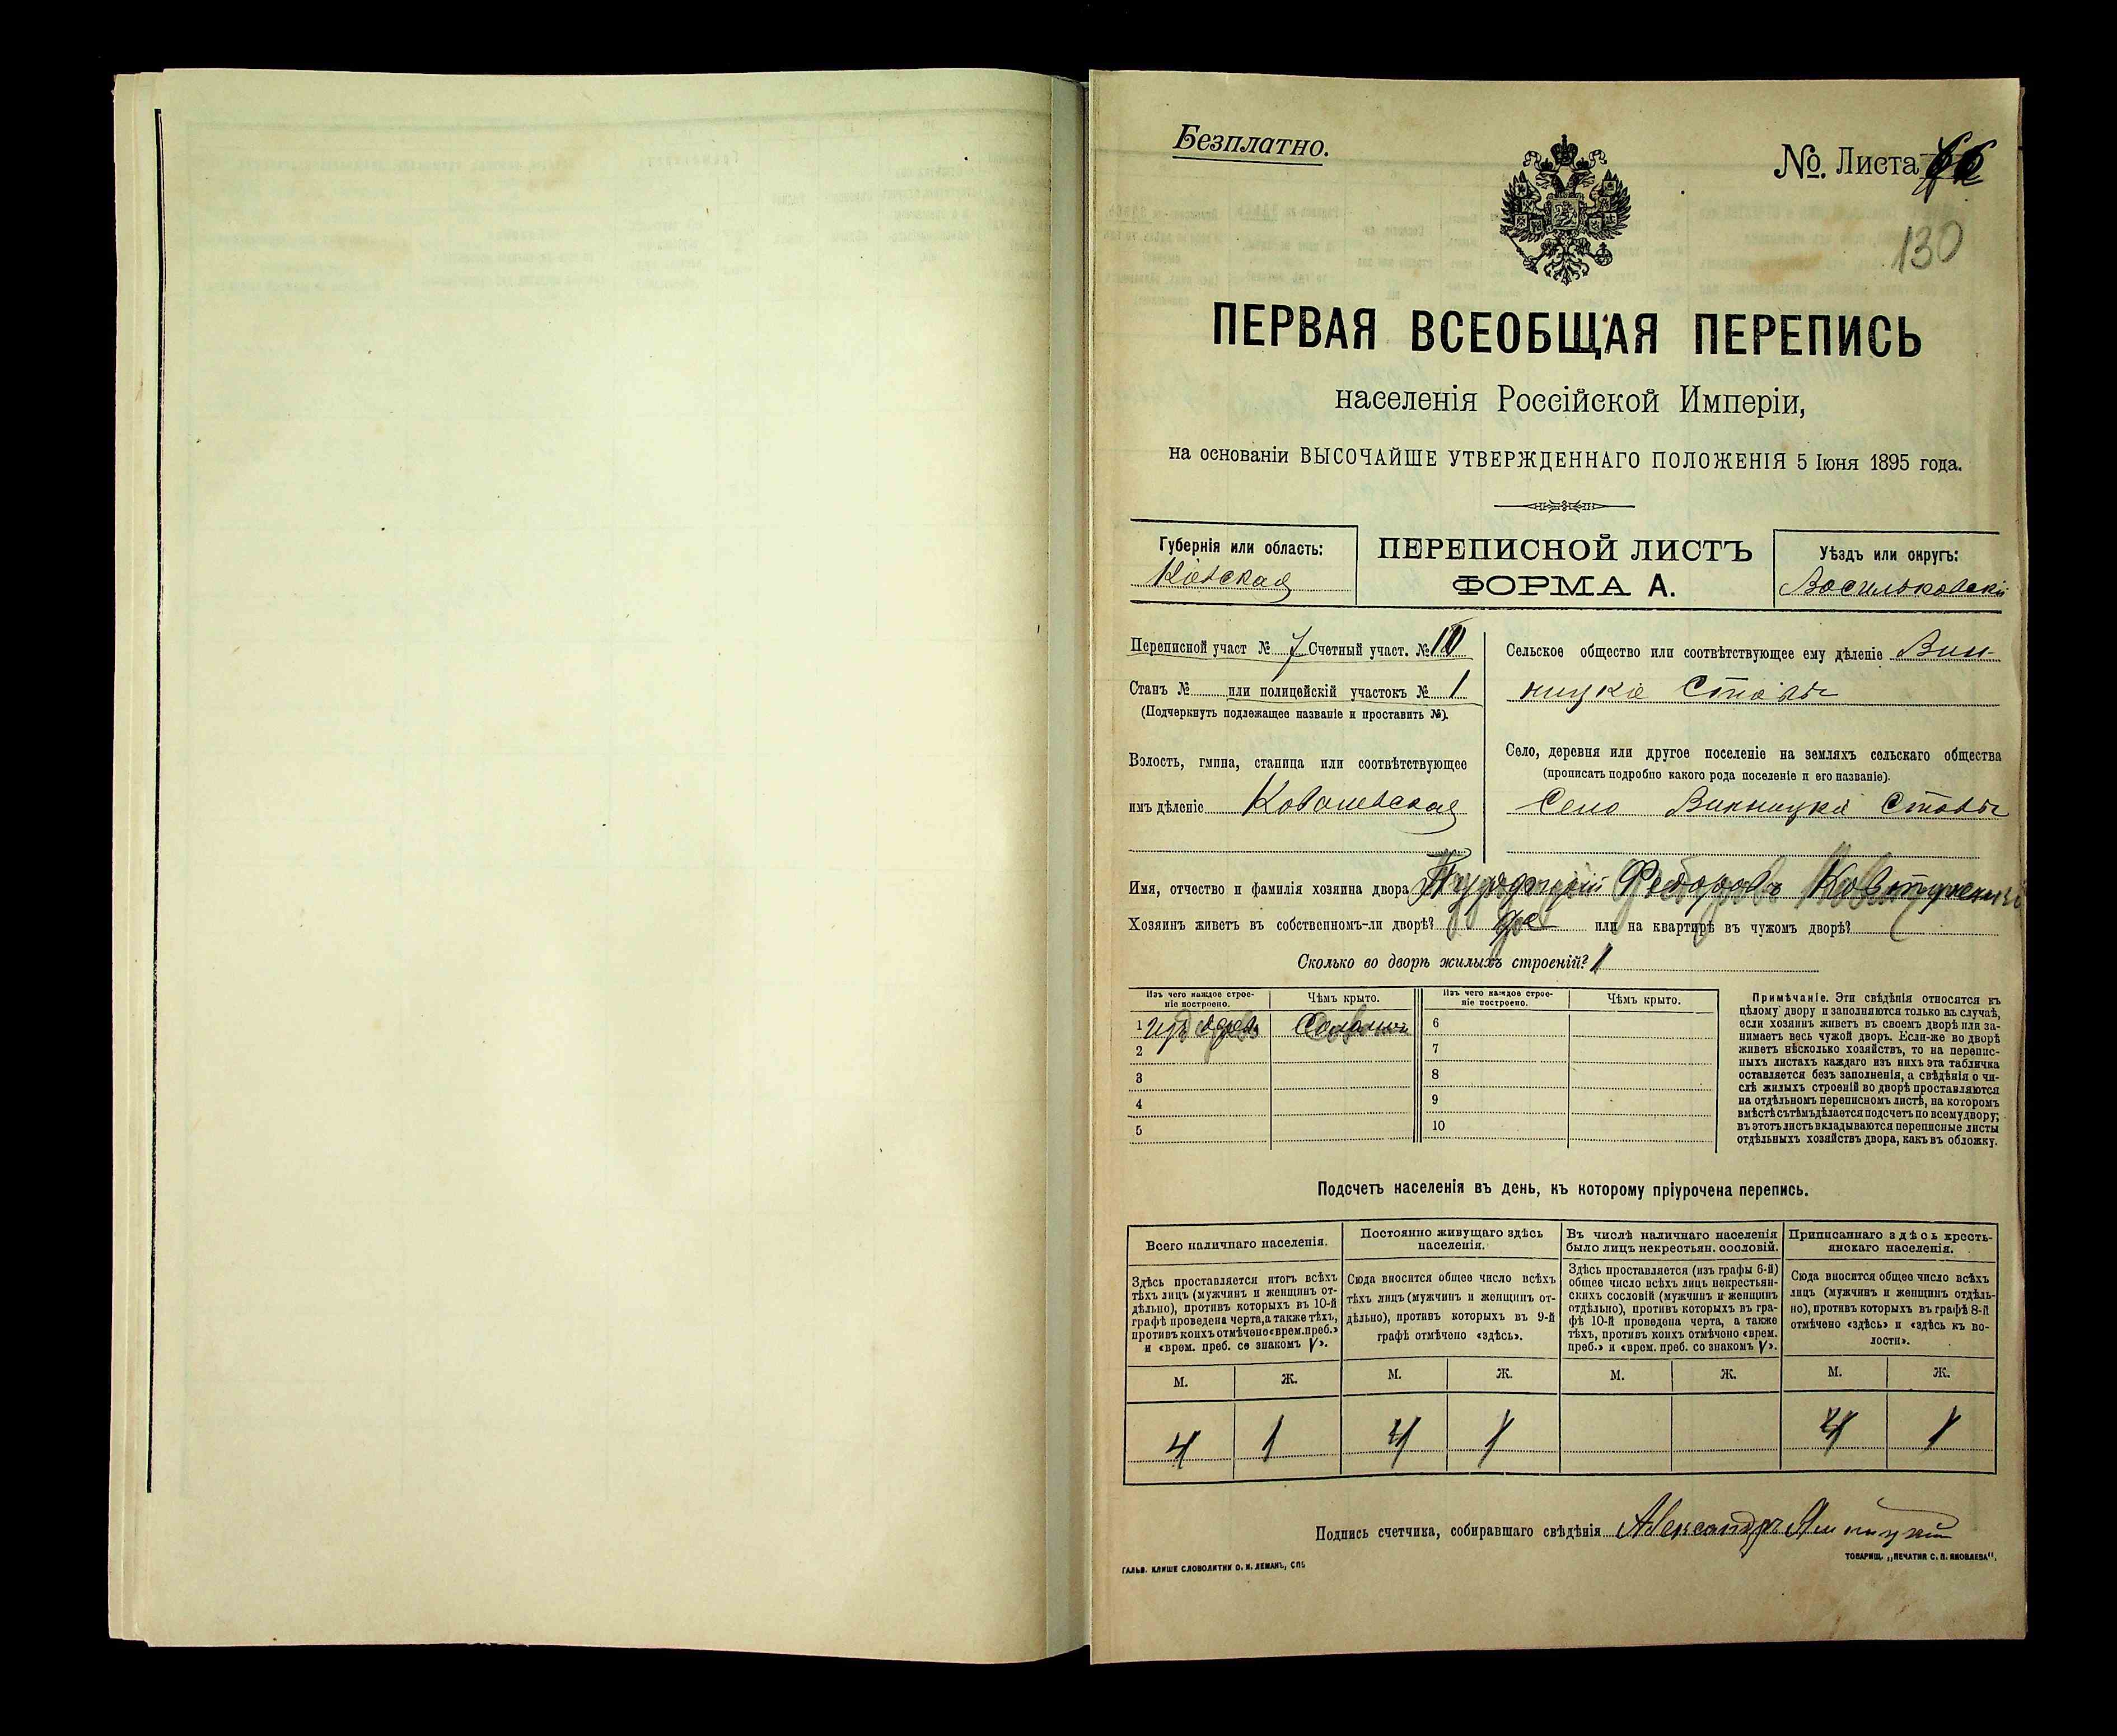 Безплатно.
№. Листа
130
ПЕРВАЯ ВСЕОБЩАЯ ПЕРЕПИСЬ
населенія Россійской Имперіи,
на основаніи ВЫСОЧАЙШЕ УТВЕРЖДЕННАГО ПОЛОЖЕНІЯ 5 Іюня 1895 года.
Губернія или область:
Кіевская
ПЕРЕПИСНОЙ ЛИСТЪ
ФОРМА А.
Уѣздъ или округъ:
Васильковскій
Переписной участ № 7 Счетный участ. №
Станъ № или полицейскій участокъ № 1
(Подчеркнуть подлежащее названіе и проставить №).
Волость, гмина, станица или соотвѣтствующее
имъ дѣленіе Ковалевская
Сельское общество или соотвѣтствующее ему дѣленіе Вин-
ницкіе Ставы
Село, деревня или другое поселеніе на земляхъ сельскаго общества
(прописать подробно какого рода поселеніе и его названіе).
Село Винницкіе Ставы
Имя, отчество и фамилія хозяина двора Федоровъ
Хозяинъ живетъ въ собственномъ-ли дворѣ? да или на квартирѣ въ чужомъ дворѣ?
Сколько во дворѣ жилыхъ строеній? 1
Изъ чего каждое строе-
ніе построено.
Чѣмъ крыто.
Изъ чего каждое строе-
ніе построено.
Чѣмъ крыто.
1 изъ дерева Соломой 6
2 7
3 8
4 9
5 10
Примѣчаніе. Эти свѣдѣнія относятся къ
цѣлому двору и заполняются только въ случаѣ,
если хозяинъ живетъ въ своемъ дворѣ или за-
нимаетъ весь чужой дворъ. Если-же во дворѣ
живетъ нѣсколько хозяйствъ, то на перепис-
ныхъ листахъ каждаго изъ нихъ эта табличка
оставляется безъ заполненія, а свѣдѣнія о чи-
слѣ жилыхъ строеній во дворѣ проставляются
на отдѣльномъ переписномъ листѣ, на которомъ
вмѣстѣ съ тѣмъ дѣлается подсчетъ по всему двору;
въ этотъ листъ вкладываются переписные листы
отдѣльныхъ хозяйствъ двора, какъ въ обложку.
Подсчетъ населенія въ день, къ которому пріурочена перепись.
Всего наличнаго населенія.
Здѣсь проставляется итогъ всѣхъ
тѣхъ лицъ (мужчинъ и женщинъ от-
дѣльно), противъ которыхъ въ 10-й
графѣ проведена черта, а также тѣхъ,
противъ коихъ отмѣчено «врем. преб.»
и «врем. преб. со знакомъ V».
Постоянно живущаго здѣсь
населенія.
Сюда вносится общее число всѣхъ
тѣхъ лицъ (мужчинъ и женщинъ от-
дѣльно), противъ которыхъ въ 9-й
графѣ отмѣчено «здѣсь».
Въ числѣ наличнаго населенія
было лицъ некрестьян. сословій.
Здѣсь проставляется (изъ графы 6-й)
общее число всѣхъ лицъ некрестьян-
скихъ сословій (мужчинъ и женщинъ
отдѣльно), противъ которыхъ въ гра-
фѣ 10-й проведена черта, а также
тѣхъ, противъ коихъ отмѣчено «врем.
преб.» и «врем. преб. со знакомъ V».
Приписаннаго здѣсь кресть-
янскаго населенія.
Сюда вносится общее число всѣхъ
лицъ (мужчинъ и женщинъ отдѣль-
но), противъ которыхъ въ графѣ 8-й
отмѣчено «здѣсь» и «здѣсь къ во-
лости».
М. Ж. М. Ж. М. Ж. М. Ж.
4 1 4 1 4 1
Подпись счетчика, собиравшаго свѣдѣнія Александръ
ГАЛЬВ. КЛИШЕ СЛОВОЛИТНИ О. И. ЛЕМАНЪ, СПБ
ТОВАРИЩ. „ПЕЧАТНЯ С. П. ЯКОВЛЕВА“.